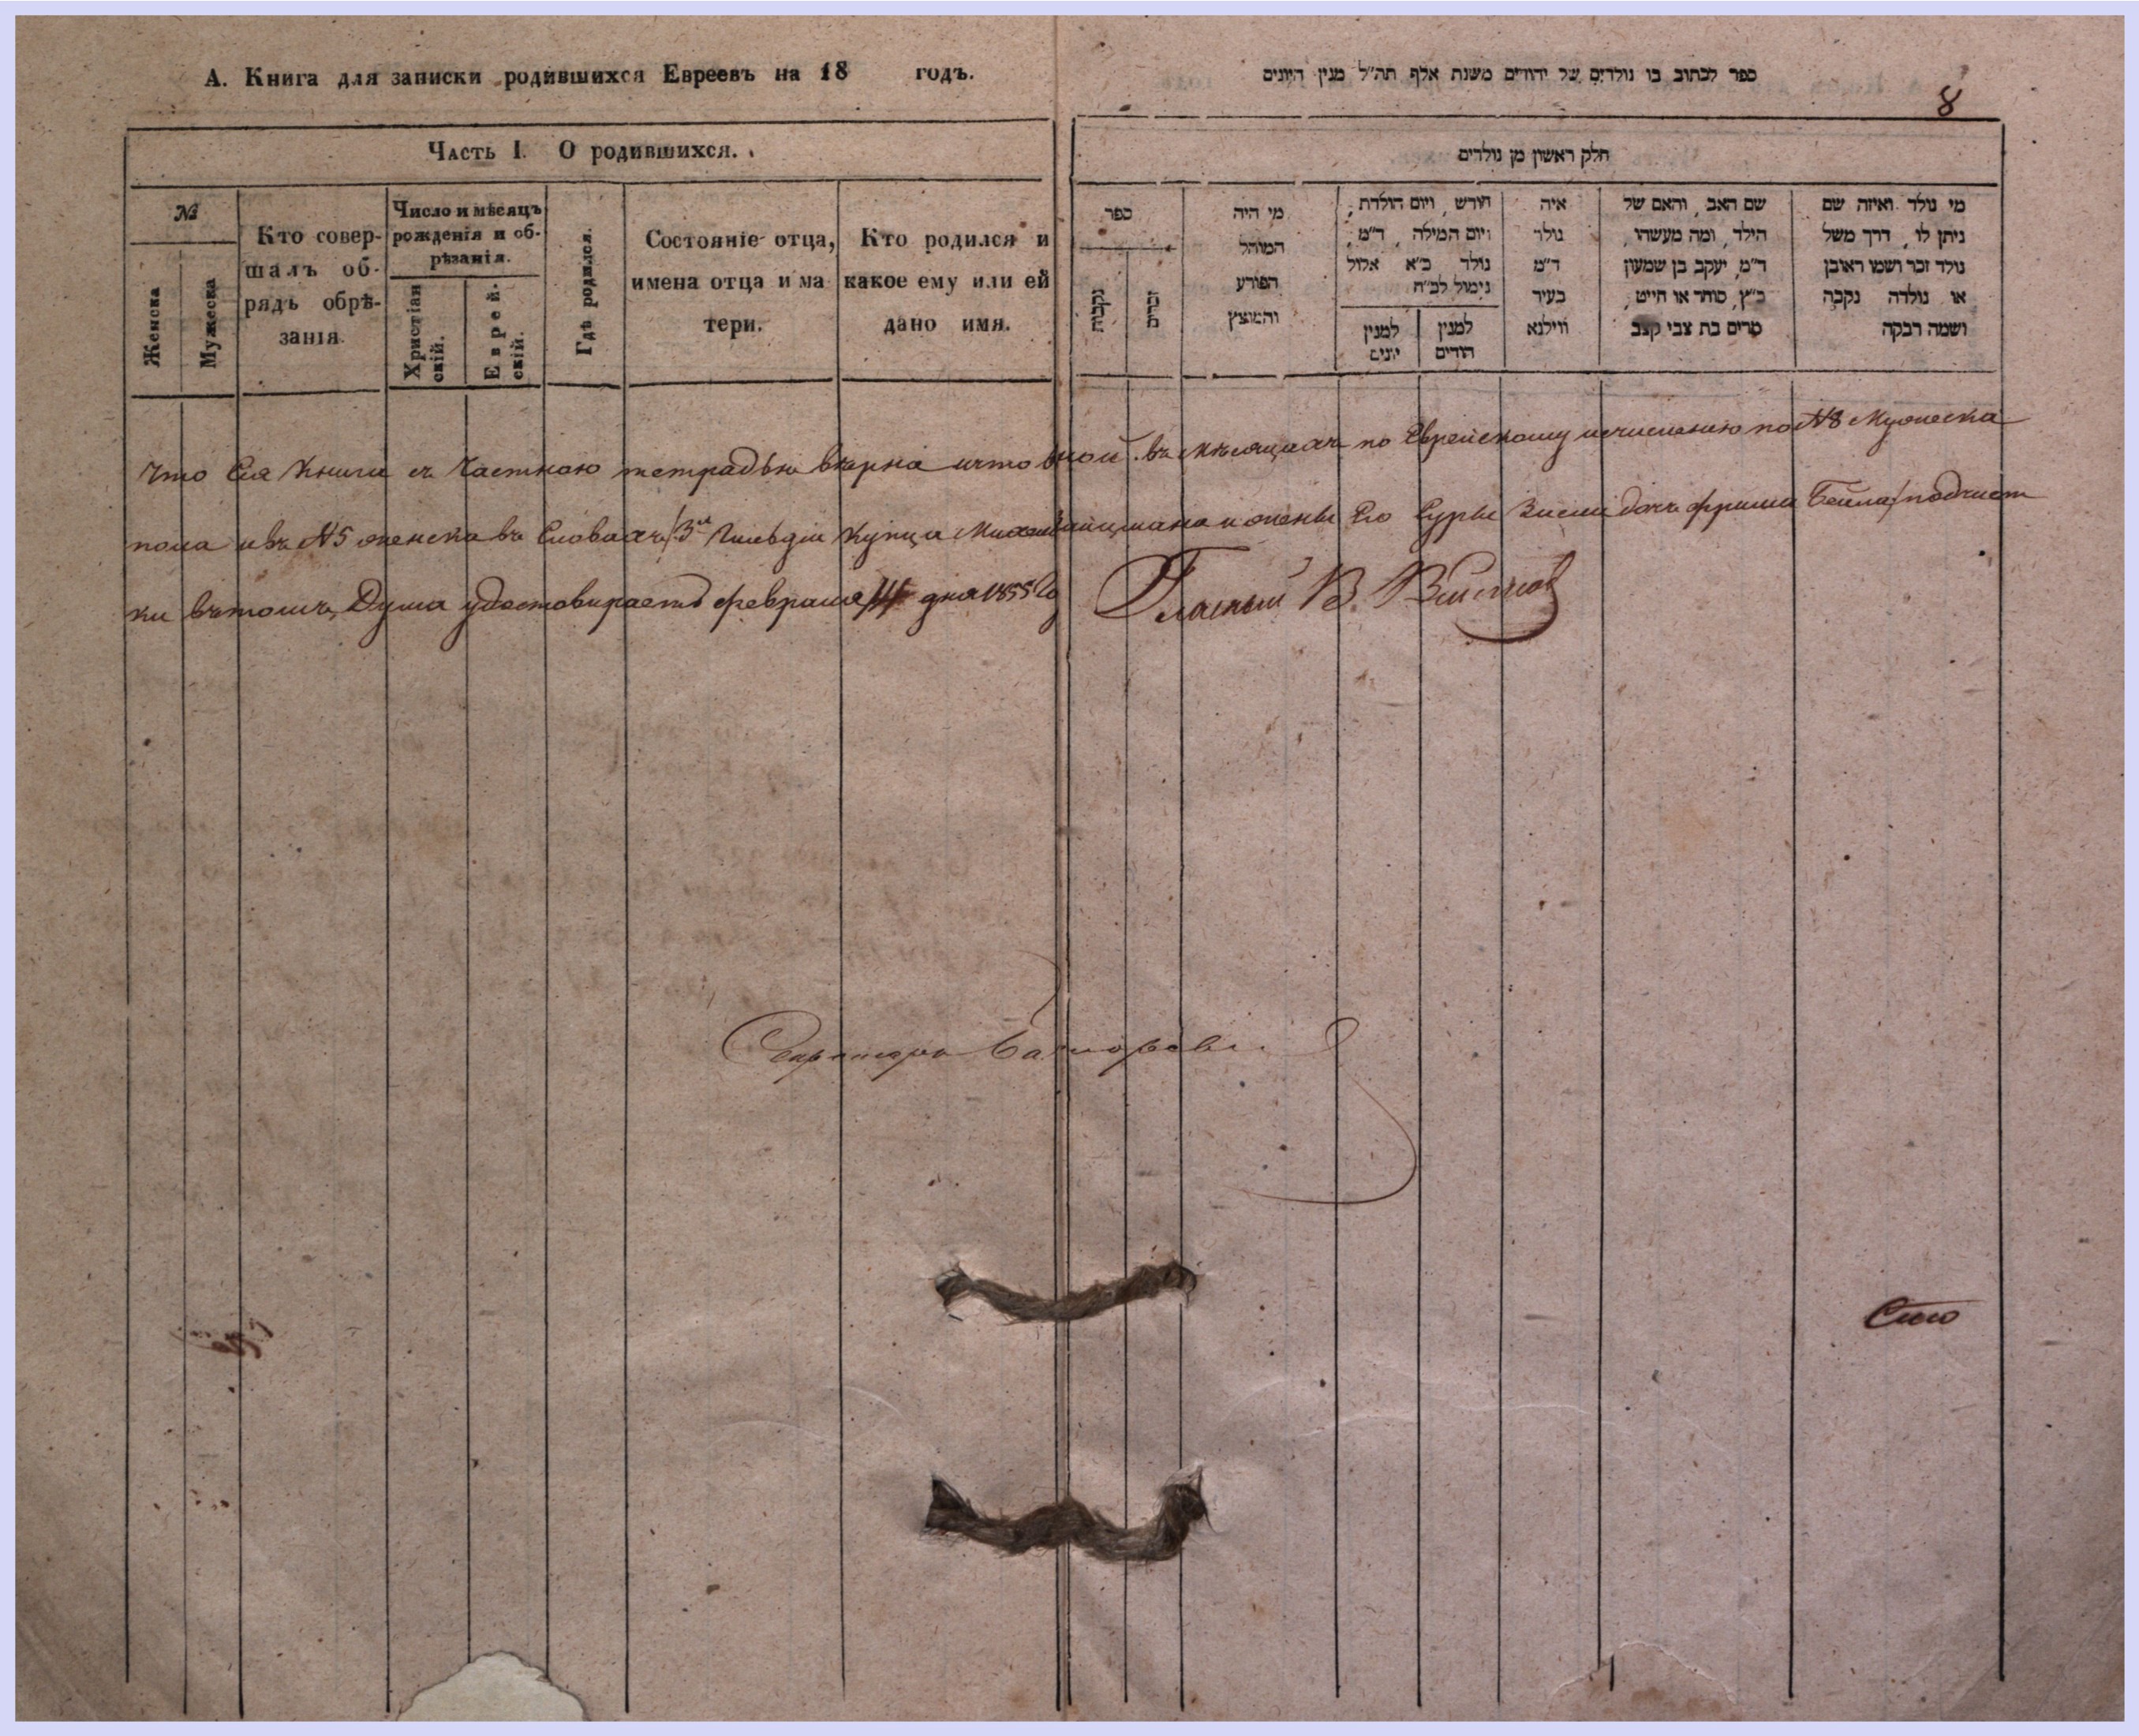 А. Книга для записки родившихся Евреевъ на 18 годъ.
Часть I. О родившихся.
№
Женска
Мужеска
Кто совер-
шалъ об-
рядъ обрѣ-
занія
Число и мѣсяцъ
рожденія и об-
рѣзанія.
Христіан
скій.
Еврей-
скій.
Гдѣ родился.
Состояніе отца,
имена отца и ма
тери.
Кто родился и
какое ему или ей
дано имя.
ספר לכתוב בו נולדים של יהודים משנת אלף תת"ל מנין היונים
8
חלק ראשון מן נולדים
ספר
נקבות
זכרים
מי היה
המוהל
הפורע
והמוצץ
חורש, ויום הולדת,
ויום המילה, ד"מ,
נולד כ"א אלול
נימול לכ"ח
למנין
יונים
למנין
הודים
איה
נולד
ד"מ
בעיר
ווילנא
שם האב, והאם של
הילד, ומה מעשהו,
ד"מ, יעקב בן שמעון
כ"ץ, סוחר או חייט,
מרים בת צבי קצב
מי נולד ואיזה שם
ניתן לו, דרך משל
נולד זכר ושמו ראובן
או נולדה נקבה
ושמה רבקה
Что Сія Книга съ Частною тетрадью вѣрна и что въ ней въ мѣсяцахъ по Еврейскому исчисленію по №8 Мужеска
пола и въ №5 женска въ Словахъ /3й Гильдіи Купца и жены Его Суры дочь Фрима Бейла/ подчист
ки въ томъ Дума удостовѣряетъ февраля дня 1855 Го
Гласный В.
Секретарь